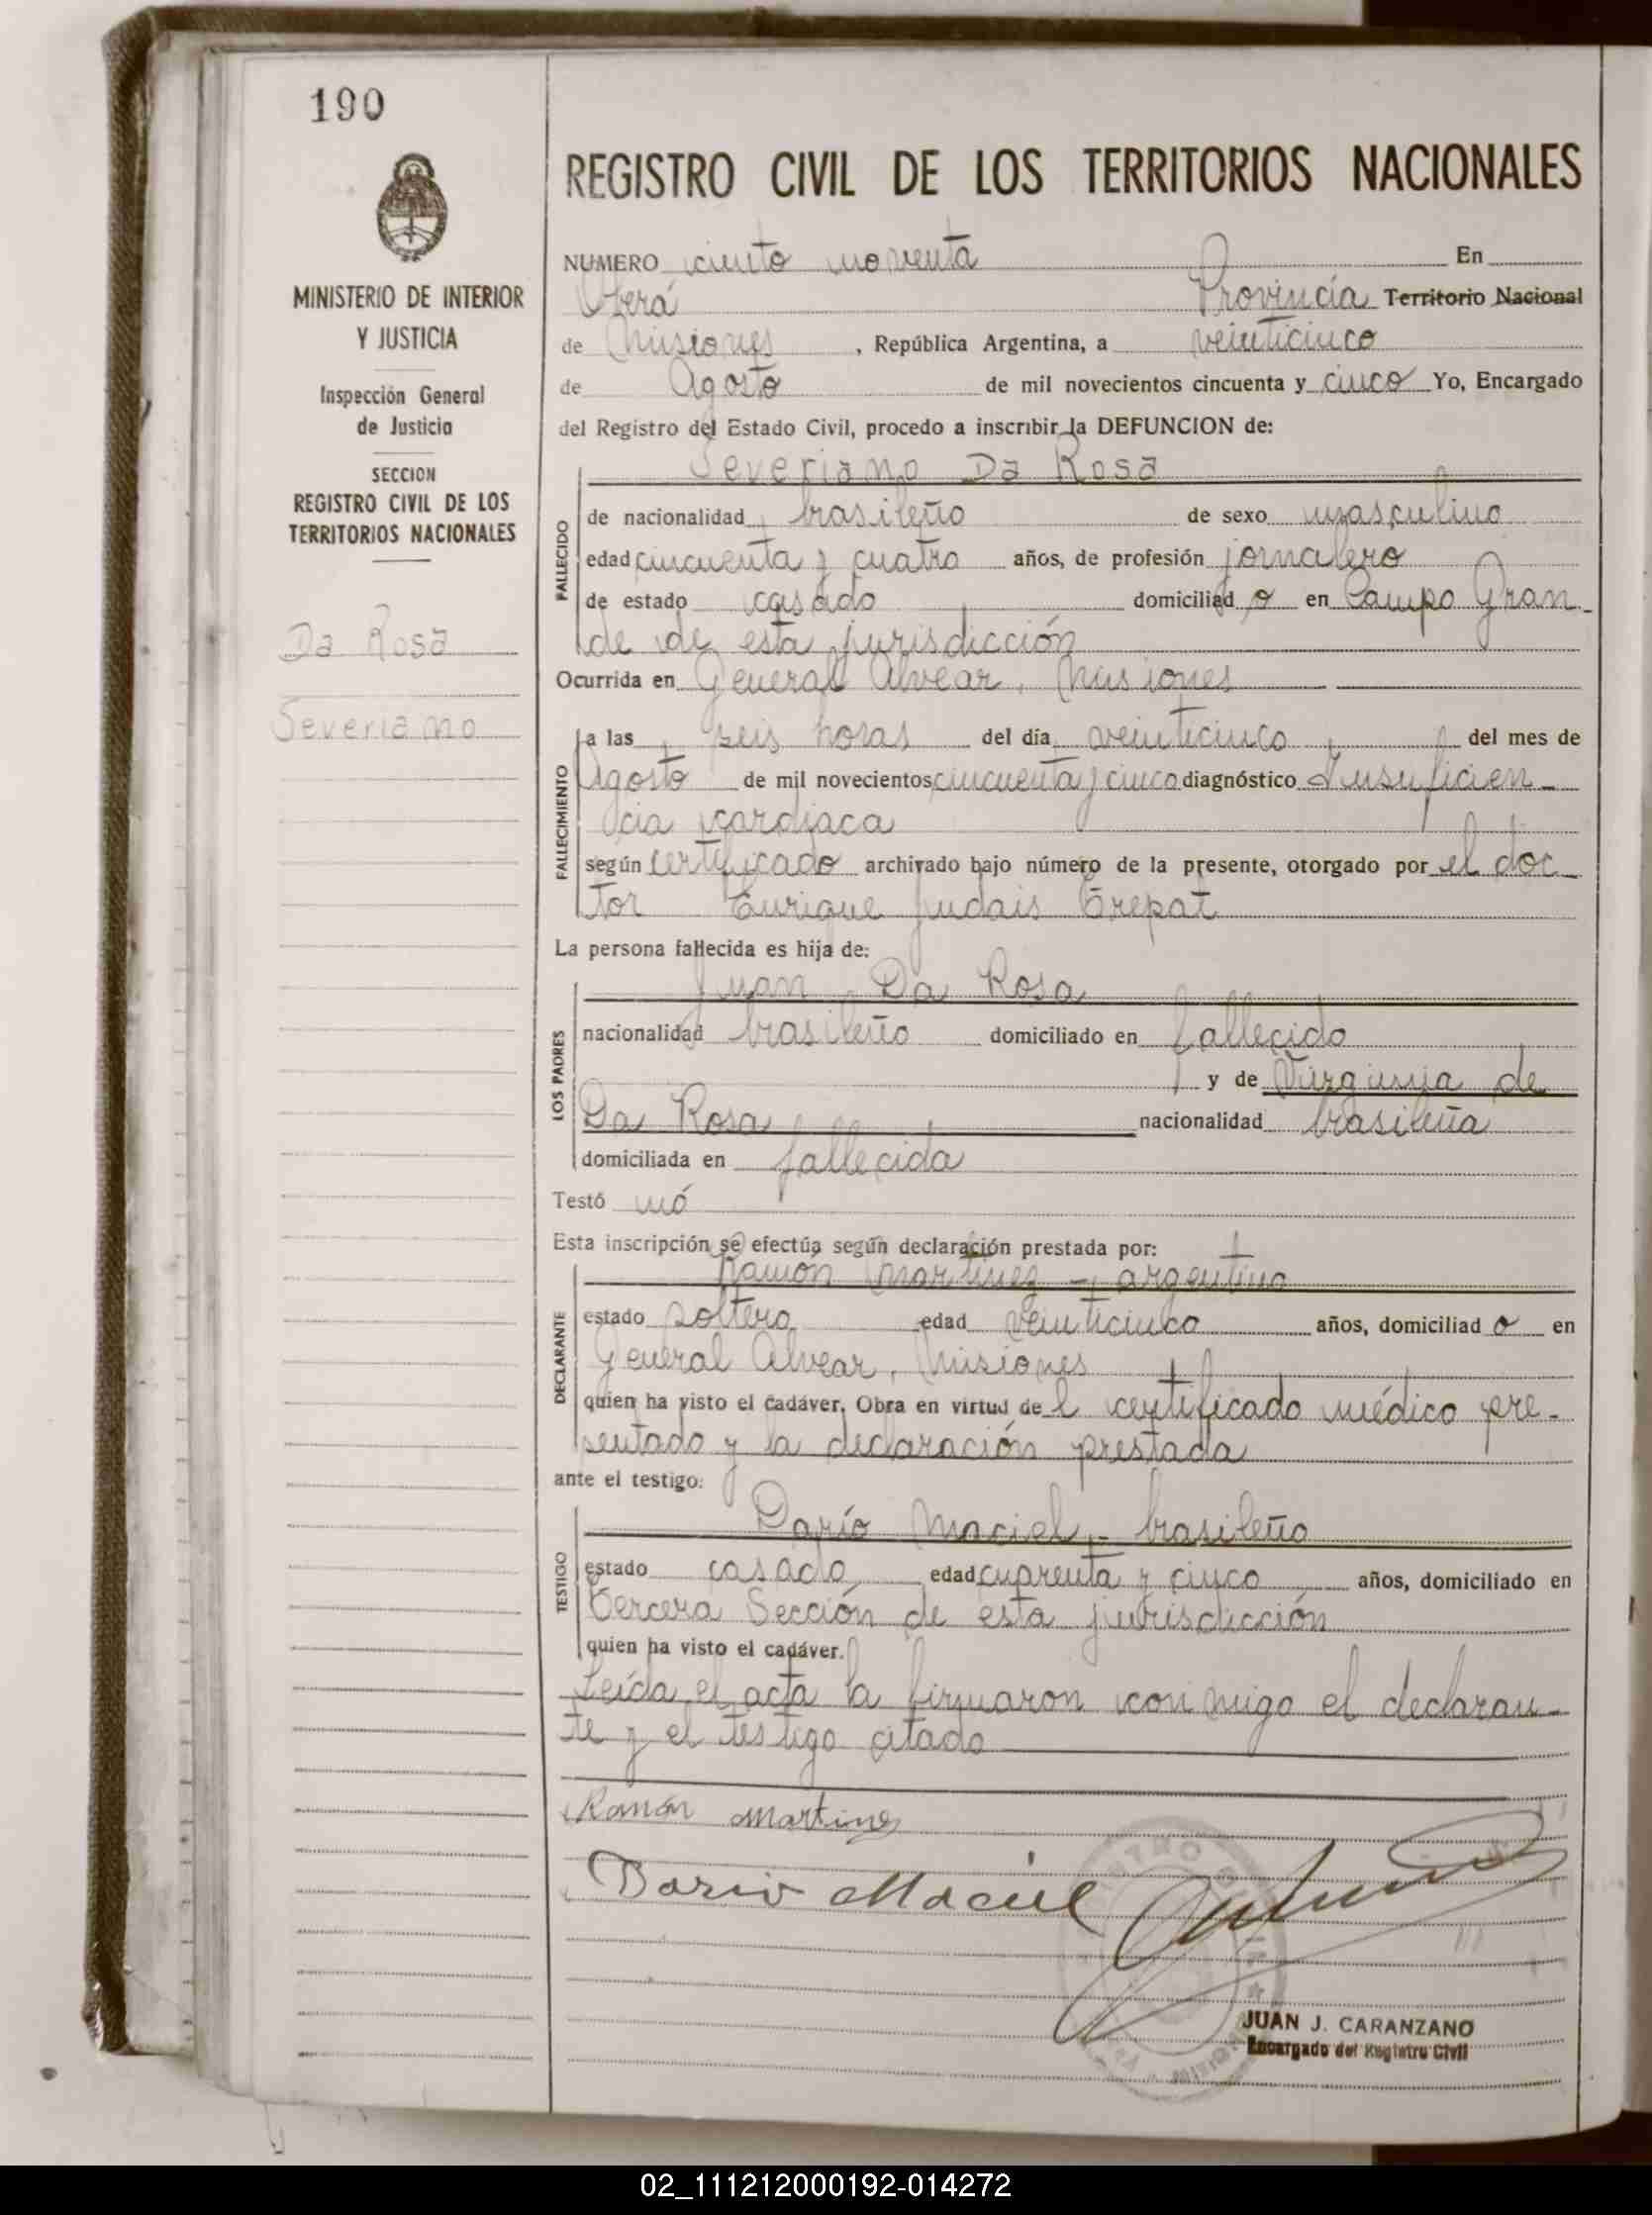 190
MINISTERIO DE INTERIOR
Y JUSTICIA
Inspección General
de Justicia
SECCION
REGISTRO CIVIL DE LOS
TERRITORIOS NACIONALES
Da Rosa
Severiano
REGISTRO CIVIL DE LOS TERRITORIOS NACIONALES
NUMERO ciento noventa En
Oberá Provincia Territorio Nacional
de Misiones, República Argentina, a veinticinco
de Agosto de mil novecientos cincuenta y cinco Yo, Encargado
del Registro del Estado Civil, procedo a inscribir la DEFUNCION de:
Severiano Da Rosa
FALLECIDO
de nacionalidad brasileño de sexo masculino
edad cincuenta y cuatro años, de profesión jornalero
de estado casado domiciliado en Campo Gran-
de de esta jurisdicción
Ocurrida en General Alvear, Misiones
FALLECIMIENTO
a las seis horas del día veinticinco del mes de
Agosto de mil novecientos cincuenta y cinco diagnóstico Insuficien-
cia cardiaca
según certificado archivado bajo número de la presente, otorgado por el doc-
tor Enrique Judais Crepat
La persona fallecida es hija de:
LOS PADRES
Juan Da Rosa
nacionalidad brasileño domiciliado en fallecido
y de Virginia de
Da Rosa nacionalidad brasileña
domiciliada en fallecida
Testó nó
Esta inscripción se efectúa según declaración prestada por:
DECLARANTE
Ramón Martinez - argentino
estado soltero edad veinticinco años, domiciliado en
General Alvear, Misiones
quien ha visto el cadáver. Obra en virtud del certificado médico pre-
sentado y la declaración prestada
ante el testigo:
TESTIGO
Darío Maciel - brasileño
estado casado edad cuarenta y cinco años, domiciliado en
Tercera Sección de esta jurisdicción
quien ha visto el cadáver.
Leída el acta la firmaron conmigo el declaran-
te y el testigo citado
Ramón Martinez
Dario Maciel
JUAN J. CARANZANO
Encargado del Registro Civil
02_111212000192-014272